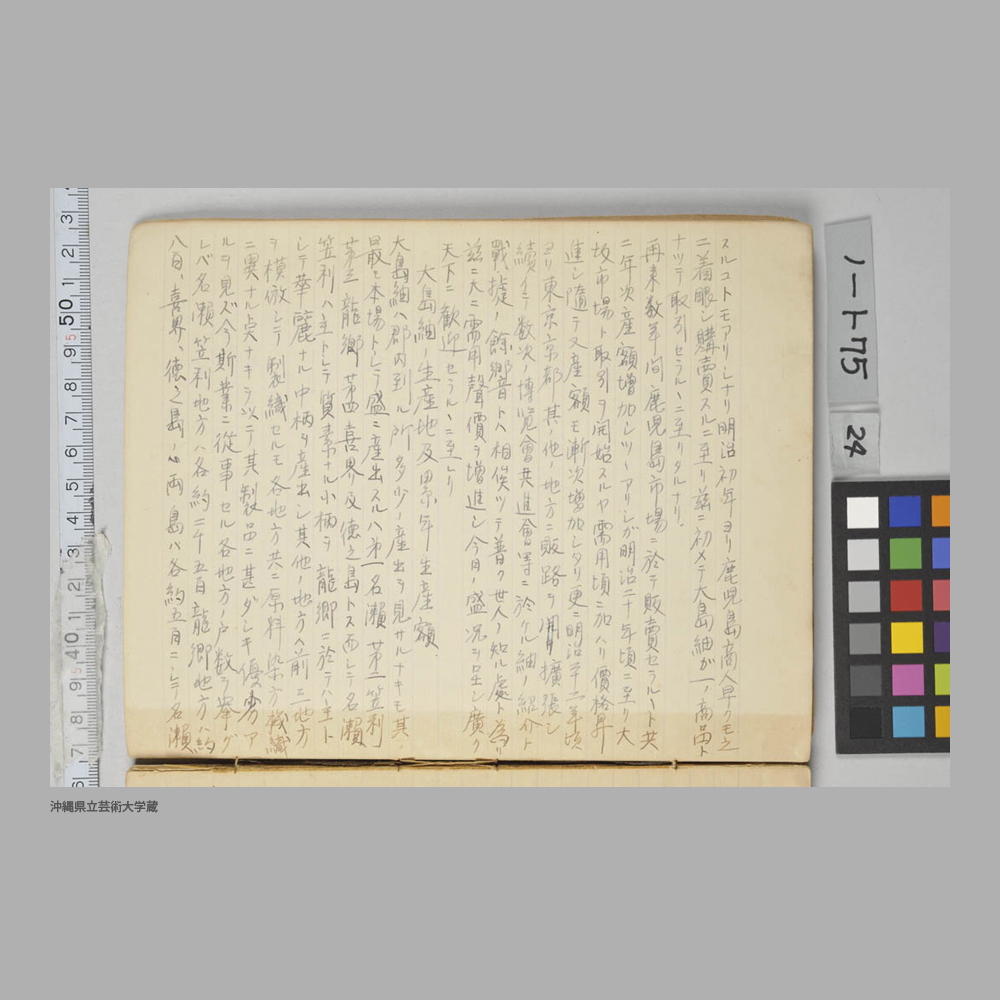 スルコトモアリシナリ明治初年ヨリ鹿児島商人早クモ之
ニ着眼シ購賣スルニ至リ茲ニ初メテ大島紬ガ一ノ商品ト
ナツテ取引セラルヽニ至リタルナリ.
再来数年間鹿児島市場ニ於テ販賣セラルヽト共
ニ年次産額増加シツヽアリシガ明治二十年頃ニ至リ大
坂市場ト取引ヲ開始スルヤ需用頃ニ加ハリ價格昇
進シ随テ又産額モ漸次増加シタリ更ニ明治年頃
ヨリ東京京都其ノ他ノ地方ニ販路ヲ擴張シ
續イテ数次ノ博覧會共進會等ニ於ケル紬ノ紹介ト
戰捷ノ餘響トハ相俟ツテ普ク世人ノ知ル處ト為リ
茲ニ大ニ需用聲價ヲ増進シ今日ノ盛況ヲ呈シ廣ク
天下ニ歓迎セラルヽニ至レリ
大島紬ノ生産地及累年生産額.
大島紬ハ郡内到ル所多少ノ産出ヲ見サルナキモ其
最モ本場トシテ盛ニ産出スルハ第一名瀬第二笠利
第三龍郷第四喜界及徳之島トス而シテ名瀬
笠利ハ主トシテ質素ナル小柄ヲ龍郷ニ於テハ主ト
シテ華麗ナル中柄ヲ産出シ其他ノ地方ハ前三地方
ヲ模倣シテ製織セルモ各地方共ニ原料染方機織
ニ異ナル点ナキヲ以テ其製品ニ甚ダシキ優劣ア
ルヲ見ズ今斯業ニ從事セル各地方ノ戸数ヲ挙グ
レバ名瀬笠利地方ハ各約二千五百龍郷地方ハ約
八百、喜界、徳之島ノ両島ハ各約五百ニシテ名瀬
ノート75
24
沖縄県立芸術大学蔵